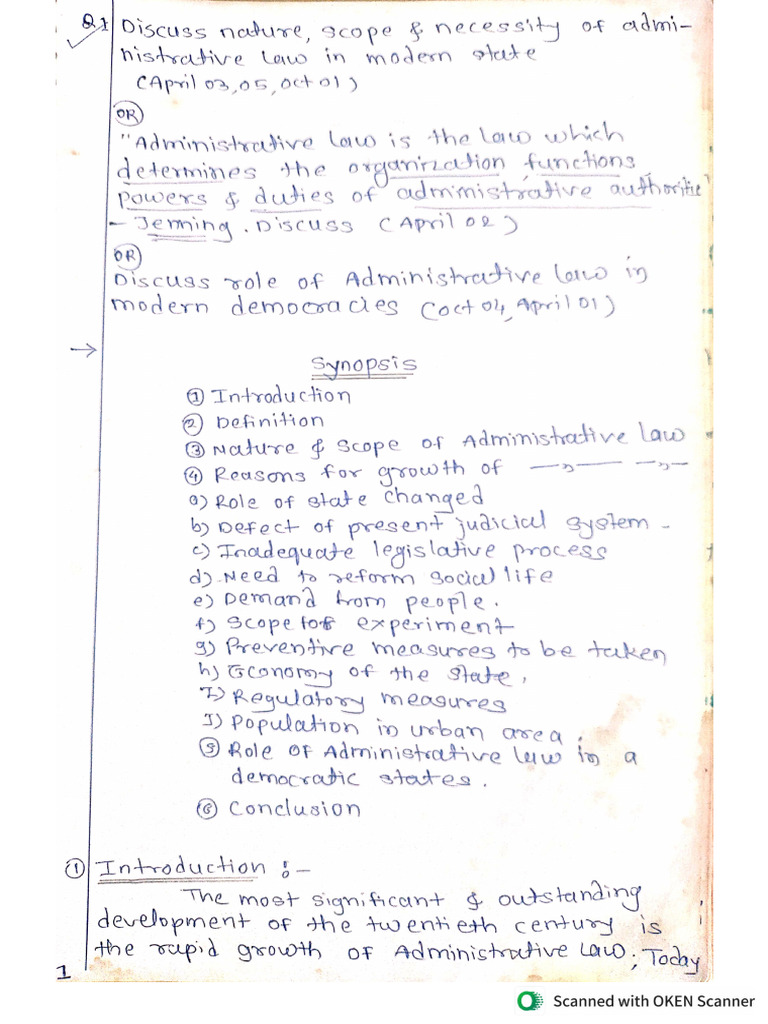 Q1 Discuss nature, scope & necessity of admi-
nistrative law in modern state
(April 03,05, Oct 01)
OR
"Administrative law is the law which
determines the organization, functions,
powers & duties of administrative authoritie"
- Jenning. Discuss (April 02)
OR
Discuss role of Administrative law in
modern democracies (Oct 04, April 01)
→
Synopsis
① Introduction
② Definition
③ Nature & scope of Administrative law
④ Reasons for growth of —〃— —〃—
a) Role of state changed
b) Defect of present judicial system -
c) Inadequate legislative process
d) Need to reform social life
e) Demand from people.
f) Scope for experiment
g) Preventive measures to be taken
h) Economy of the state,
I) Regulatory measures
J) Population in urban area.
⑤ Role of Administrative law in a
democratic states.
⑥ Conclusion
① Introduction :-
The most significant & outstanding
development of the twentieth century is
the rapid growth of Administrative law; Today
1
Scanned with OKEN Scanner